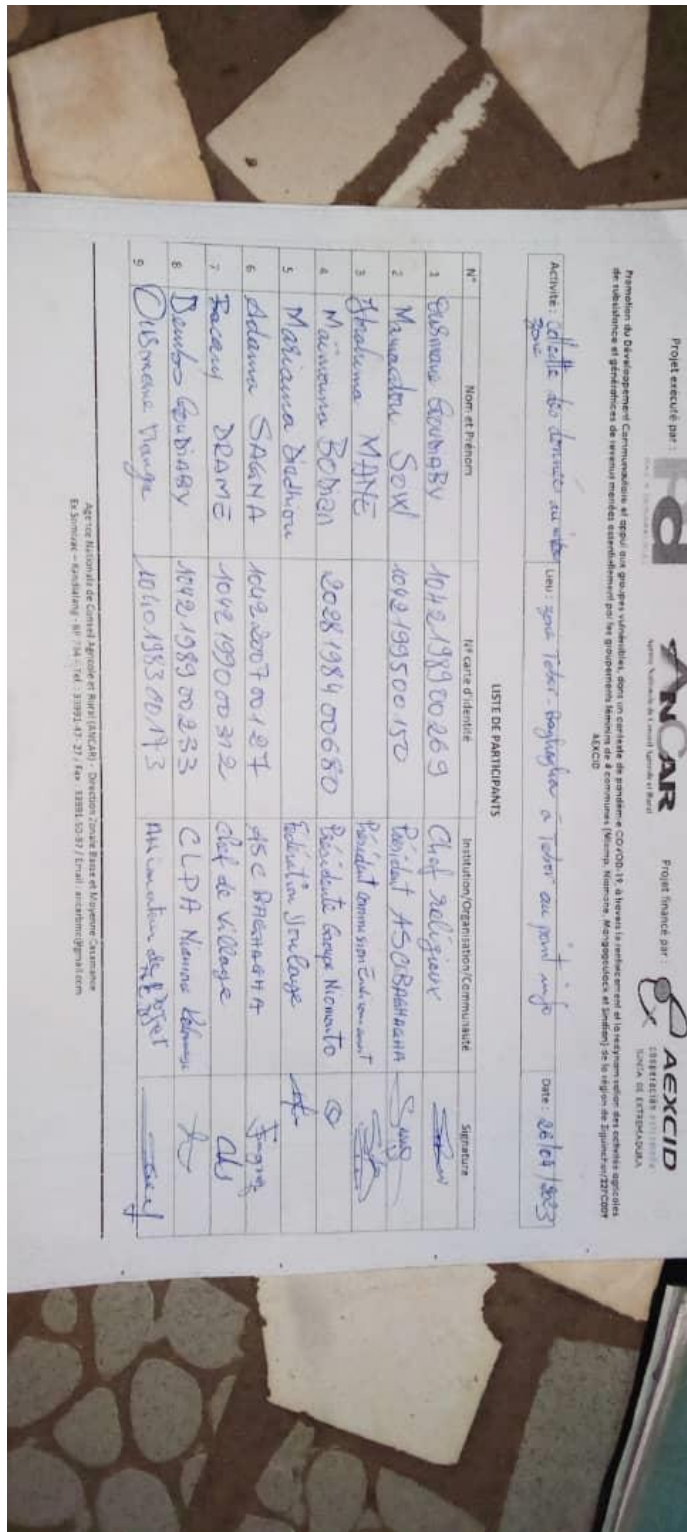 Projet exécuté par :
ANCAR
Agence Nationale de Conseil Agricole et Rural
Projet financé par :
AEXCID
cooperación extremeña
JUNTA DE EXTREMADURA
Promotion du Développement Communautaire et appui aux groupes vulnérables, dans un contexte de pandémie COVOD-19, à travers le renforcement et la redynamisation des activités agricoles
de subsistance et génératrices de revenus menées essentiellement par les groupements féminins de 4 communes (Niamone, Mangagoulack et Sindian) de la région de Ziguinchor/22PC009
AEXCID
Activité : Collecte des données au
zone
Lieu : zone Tobor-Baghagha à Tobor au point info
Date : 26/04/2023
LISTE DE PARTICIPANTS
N° Nom et Prénom N° carte d'identité Institution/Organisation/Communauté Signature
1 Ousmane GOUDIABY 1042198900269 Chef religieux
2 Mamadou SOW 1042199500150 Président ASC BAGHAGHA
3 Ibrahima MANE Président commission Environnement
4 Maïmouna BODIAN 2028198400680 Présidente Groupe Niomouto
5 Mariama Diédhiou Fédération
6 Adama SAGNA 1042200700127 ASC BAGHAGHA
7 DRAME 1042199000312 Chef de village
8 Dembo GOUDIABY 1042198900233 CLPA Niamone
9 Ousmane 1040198300193 Animateur de Projet
Agence Nationale de Conseil Agricole et Rural (ANCAR) - Direction Zonale Basse et Moyenne Casamance
Ex Somivac – Kandialang - BP 734 – Tel : 33991-47- 27 / Fax : 33991-50-87 / Email : ancarbmc@gmail.com